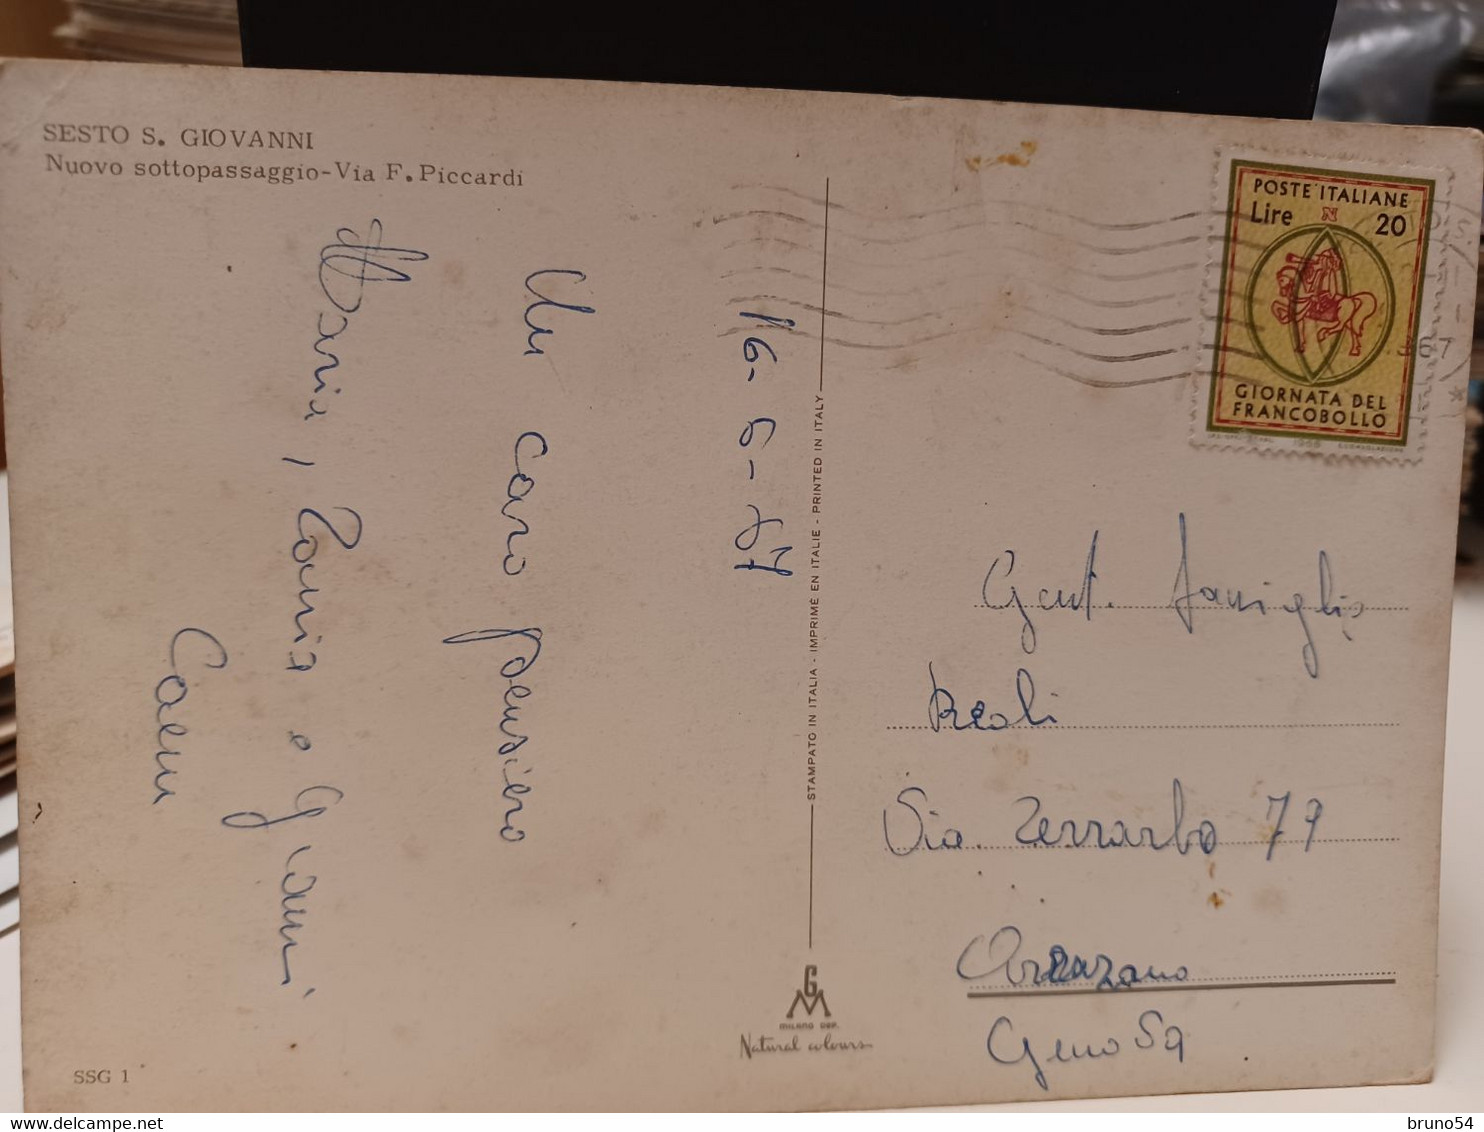 SESTO S. GIOVANNI
Nuovo sottopassaggio-Via F. Piccardi
16-6-67
Un caro pensiero
Maria, Tonia e Gianni
POSTE ITALIANE
Lire N 20
GIORNATA DEL
FRANCOBOLLO
1966
STAMPATO IN ITALIA - IMPRIMÉ EN ITALIE - PRINTED IN ITALY
Gent. famiglia
Reali
Via Terrarbo 79
Arenzano
Genova
GM
MILANO DEP.
Natural colours
SSG 1
bruno54